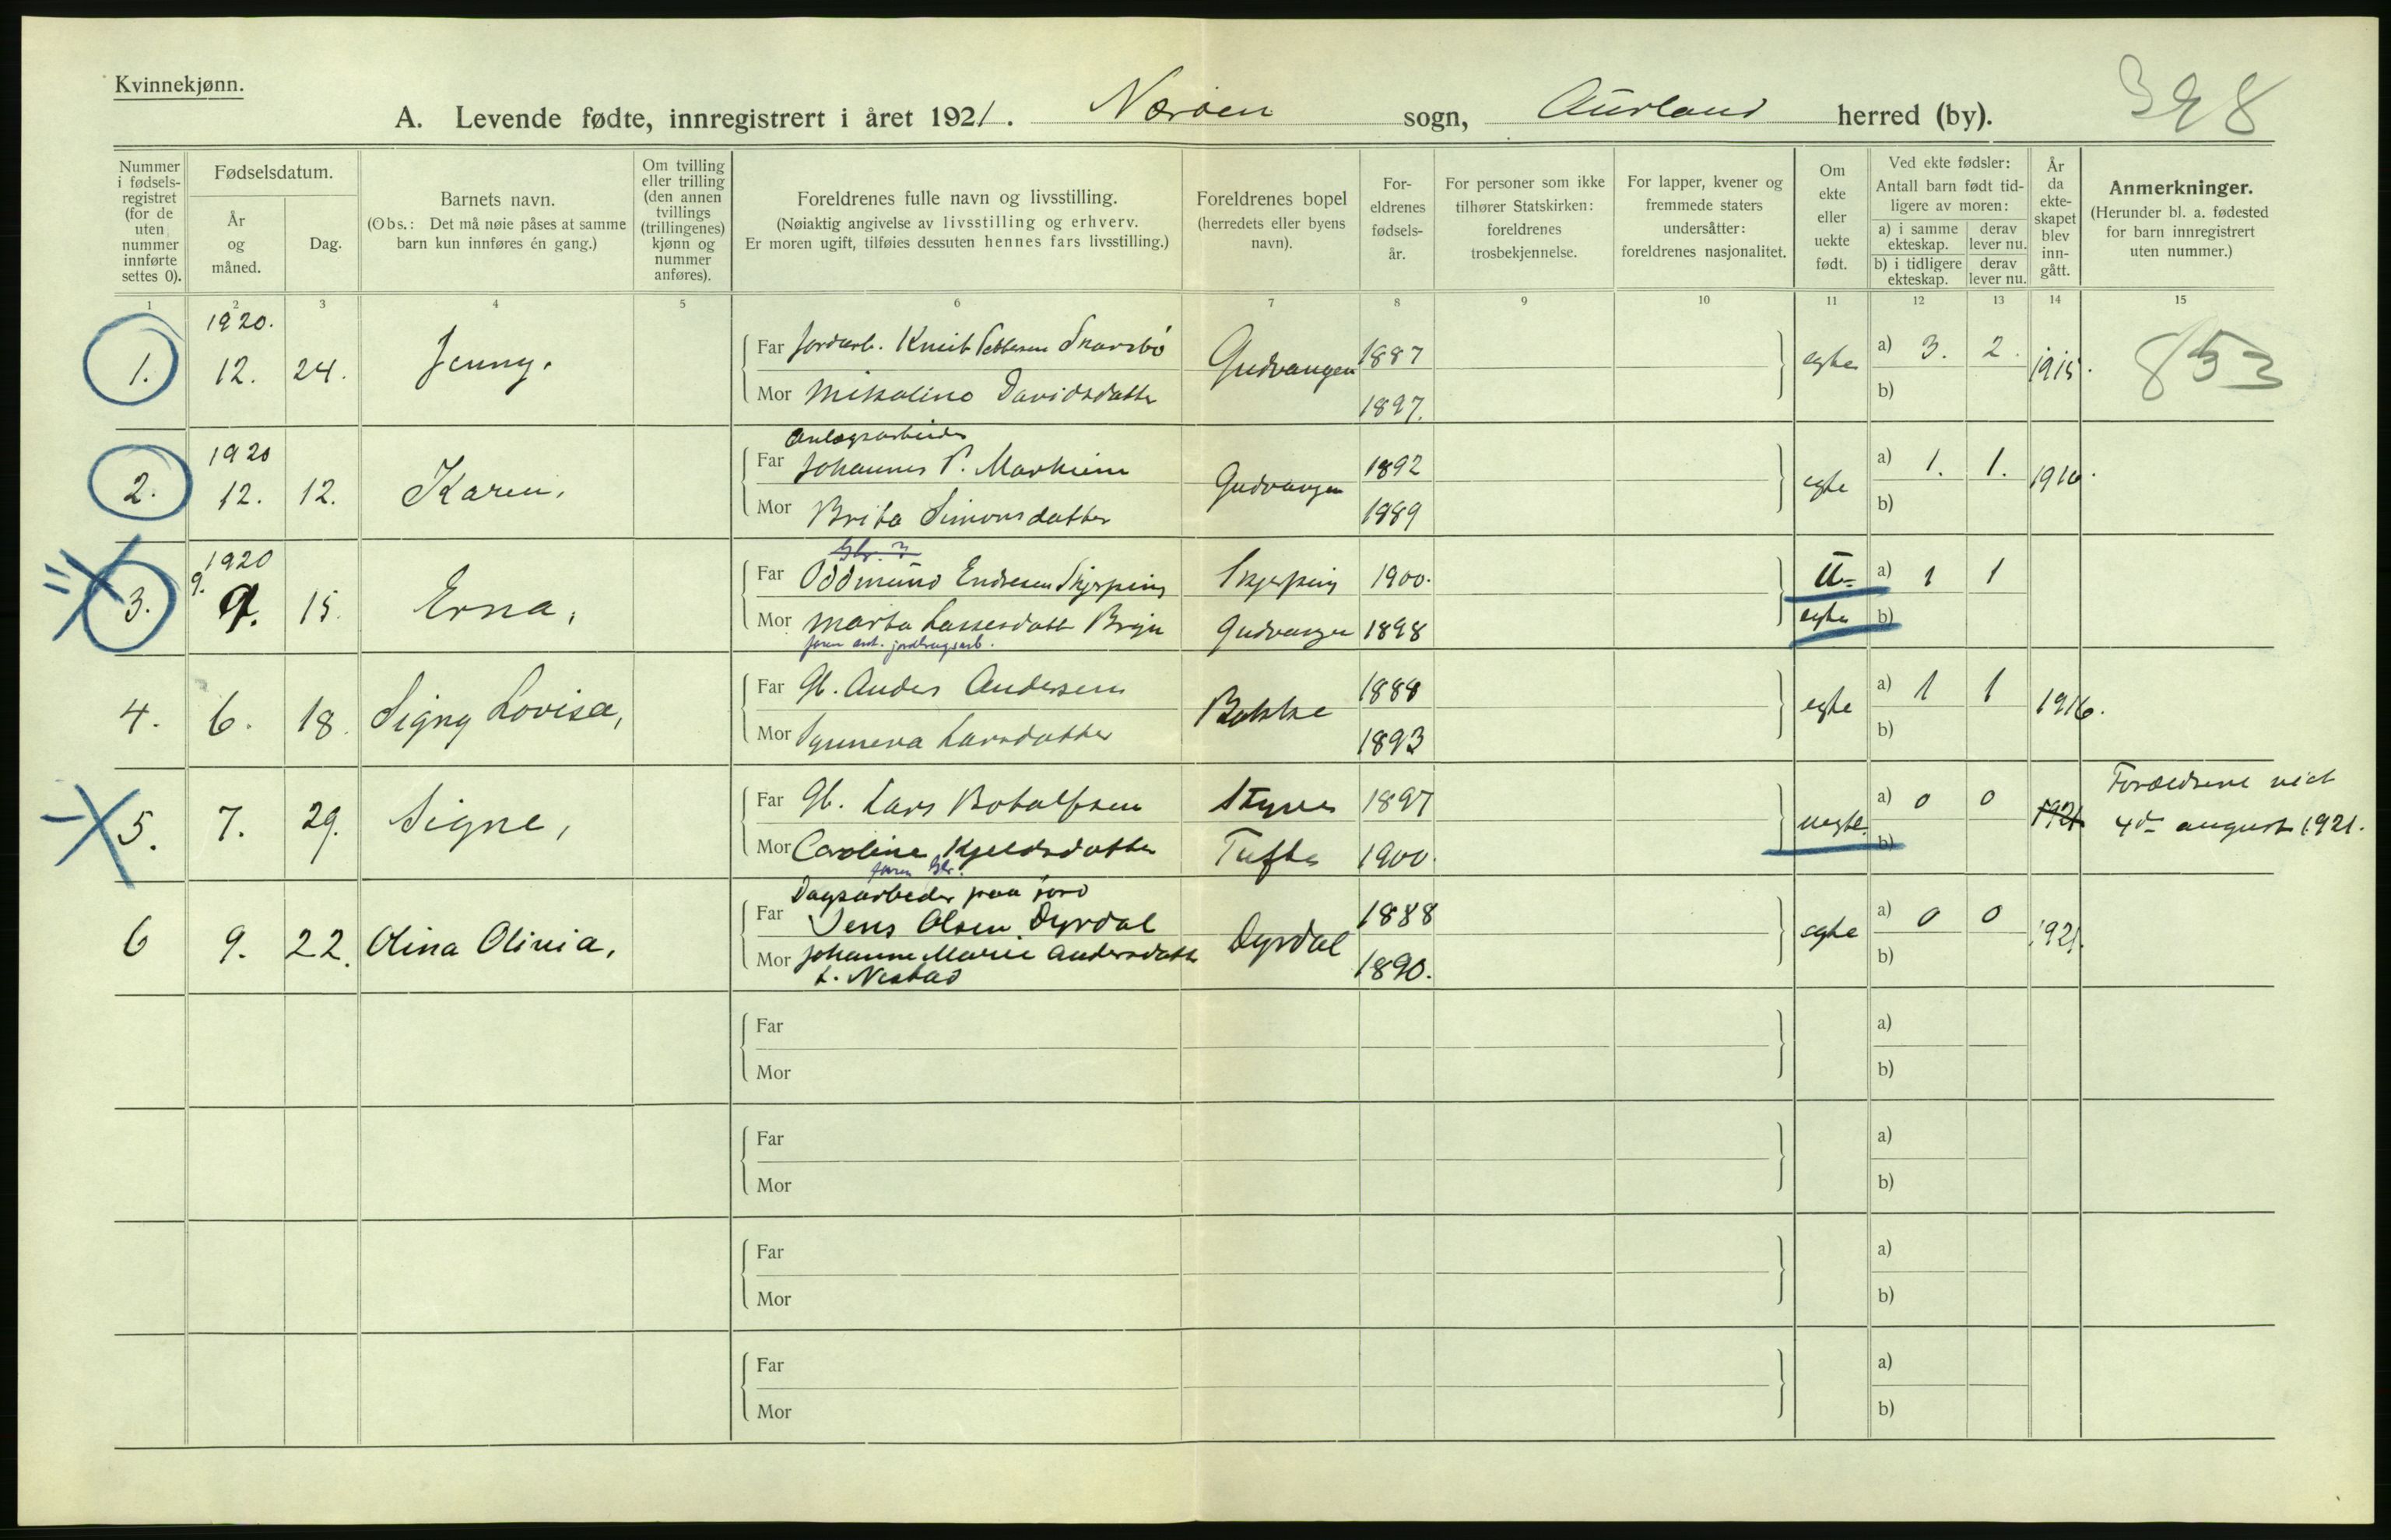 Kvinnekjønn.
328
A. Levende fødte, innregistrert i året 1921. Nærøen sogn, Aurland herred (by).
Nummer i fødsels-registret (for de uten nummer innførte settes 0).
Fødselsdatum.
År og måned.
Dag.
Barnets navn.
(Obs.: Det må nøie påses at samme barn kun innføres én gang.)
Om tvilling eller trilling (den annen tvillings (trillingenes) kjønn og nummer anføres).
Foreldrenes fulle navn og livsstilling.
(Nøiaktig angivelse av livsstilling og erhverv.
Er moren ugift, tilføies dessuten hennes fars livsstilling.)
Foreldrenes bopel (herredets eller byens navn).
For-eldrenes fødsels-år.
For personer som ikke tilhører Statskirken: foreldrenes trosbekjennelse.
For lapper, kvener og fremmede staters undersåtter: foreldrenes nasjonalitet.
Om ekte eller uekte født.
Ved ekte fødsler:
Antall barn født tid-ligere av moren:
a) i samme ekteskap.
derav lever nu.
b) i tidligere ekteskap.
derav lever nu.
År da ekte-skapet blev inn-gått.
Anmerkninger.
(Herunder bl. a. fødested for barn innregistrert uten nummer.)
1 2 3 4 5 6 7 8 9 10 11 12 13 14 15
1. 1920. 12. 24. Jenny.
Far Jordarb. Knut Skarsbö Gudvangen 1887
Mor Mikaline Davidsdatter 1897.
egte a) 3. 2. b) 1915. 853
2. 1920 12. 12. Karen,
Anlægsarbeider
Far Johannes P. Marheim Gudvangen 1892
Mor Brita Simonsdatter 1889
egte a) 1. 1. b) 1916.
3. 1920 9. 9. 15. Erna,
Gbr.
Far Oddmund Endresen Skjerping Skjerping 1900.
Mor Marta Lassesdatt Bryn Gudvangen 1898
faren
U- egte a) 1 1 b)
4. 6. 18. Signy Lovisa,
Far Gb. Anders Andersen Bakke 1888
Mor Synneva Larsdatter 1893
egte a) 1 1 b) 1916.
5. 7. 29. Signe,
Far Gb. Lars Botolfsen Styve 1897
Mor Caroline Kjeldsdatter Tufte 1900.
faren Gbr.
uegte. a) 0 0 b) 1921
Forældrene viet
4de august 1921.
6 9. 22. Olina Olivia,
Dagsarbeider paa jord
Far Jens Olsen Dyrdal Dyrdal 1888
Mor Johanne Marie Andersdatter 1890.
f. Nestad
egte a) 0 0 b) 1921.
Far a)
Mor b)
Far a)
Mor b)
Far a)
Mor b)
Far a)
Mor b)